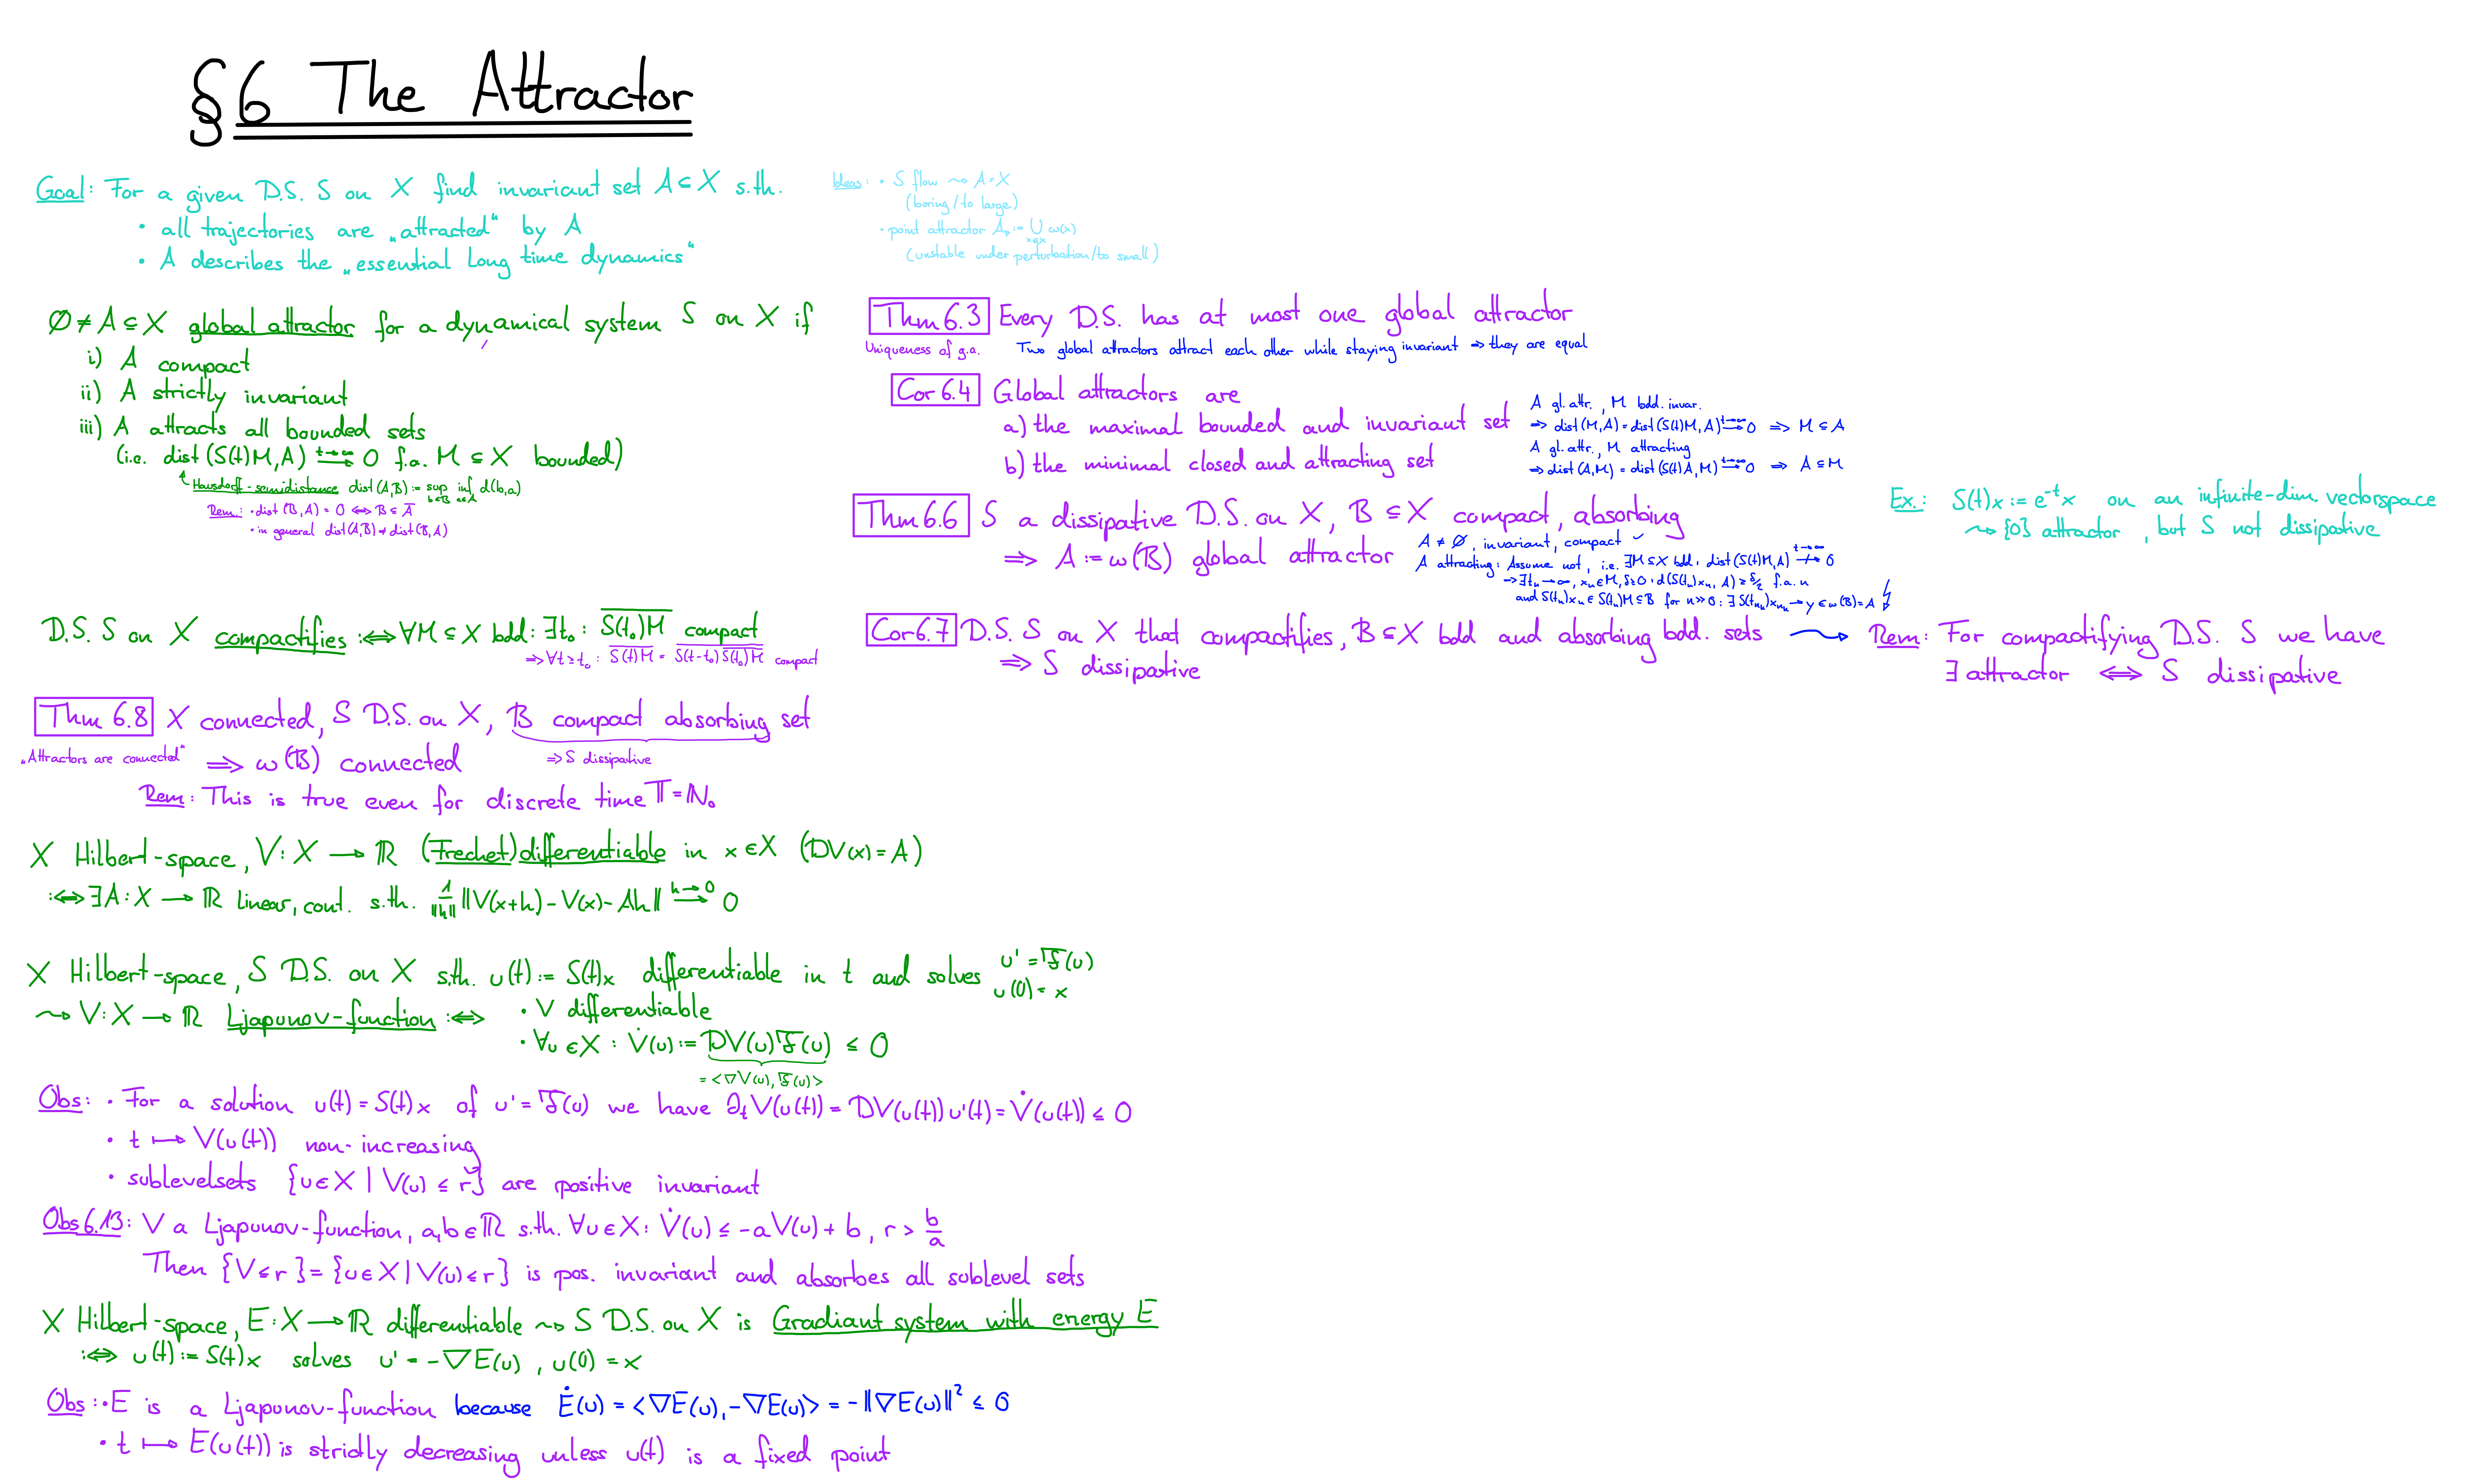 §6 The Attractor
Goal: For a given D.S. S on X find invariant set A ⊆ X s.th.
• all trajectories are „attracted“ by A
• A describes the „essential long time dynamics“
Ideas: • S flow ⇝ A = X
(boring / to large)
• point attractor A_p := ⋃_{x∈X} ω(x)
(unstable under perturbation / to small)
∅ ≠ A ⊆ X global attractor for a dynamical system S on X if
i) A compact
ii) A strictly invariant
iii) A attracts all bounded sets
(i.e. dist(S(t)M, A) →^{t→∞} 0 f.a. M ⊆ X bounded)
Hausdorff-semidistance dist(A,B) := sup_{b∈B} inf_{a∈A} d(b,a)
Rem.: • dist(B,A) = 0 ⟺ B ⊆ Ā
• in general dist(A,B) ≠ dist(B,A)
Thm 6.3 Every D.S. has at most one global attractor
Uniqueness of g.a. Two global attractors attract each other while staying invariant ⇒ they are equal
Cor 6.4 Global attractors are
a) the maximal bounded and invariant set
A gl. attr., M bdd. invar.
⇒ dist(M,A) = dist(S(t)M,A) →^{t→∞} 0 ⇒ M ⊆ A
b) the minimal closed and attracting set
A gl. attr., M attracting
⇒ dist(A,M) = dist(S(t)A,M) →^{t→∞} 0 ⇒ A ⊆ M
Thm 6.6 S a dissipative D.S. on X, B ⊆ X compact, absorbing
⇒ A := ω(B) global attractor
A ≠ ∅, invariant, compact ✓
A attracting: Assume not, i.e. ∃M ⊆ X bdd: dist(S(t)M,A) ↛^{t→∞} 0
→ ∃t_n → ∞, x_n ∈ M, δ ≥ 0: d(S(t_n)x_n, A) ≥ δ/2 f.a. n
and S(t_n)x_n ∈ S(t_n)M ⊆ B for n ≫ 0: ∃ S(t_{n_k})x_{n_k} → y ∈ ω(B) = A ↯
Ex.: S(t)x := e^{-t}x on an infinite-dim. vectorspace
⇝ {0} attractor, but S not dissipative
D.S. S on X compactifies :⟺ ∀M ⊆ X bdd: ∃t₀: \overline{S(t₀)M} compact
⇒ ∀t ≥ t₀: \overline{S(t)M} = \overline{S(t-t₀)\overline{S(t₀)M}} compact
Cor 6.7 D.S. S on X that compactifies, B ⊆ X bdd and absorbing bdd. sets
⇒ S dissipative
Rem: For compactifying D.S. S we have
∃ attractor ⟺ S dissipative
Thm 6.8 X connected, S D.S. on X, B compact absorbing set
„Attractors are connected“ ⇒ ω(B) connected
⇒ S dissipative
Rem: This is true even for discrete time 𝕋 = ℕ₀
X Hilbert-space, V: X → ℝ (Frechet) differentiable in x ∈ X (DV(x) = A)
:⟺ ∃A: X → ℝ linear, cont. s.th. 1/‖h‖ ‖V(x+h) - V(x) - Ah‖ →^{h→0} 0
X Hilbert-space, S D.S. on X s.th. u(t) := S(t)x differentiable in t and solves u' = F(u)
u(0) = x
⇝ V: X → ℝ Ljapunov-function :⟺ • V differentiable
• ∀u ∈ X: V̇(u) := DV(u)F(u) ≤ 0
= <∇V(u), F(u)>
Obs: • For a solution u(t) = S(t)x of u' = F(u) we have ∂_t V(u(t)) = DV(u(t))u'(t) = V̇(u(t)) ≤ 0
• t ↦ V(u(t)) non-increasing
• sublevelsets {u ∈ X | V(u) ≤ r} are positive invariant
Obs 6.13: V a Ljapunov-function, a,b ∈ ℝ s.th. ∀u ∈ X: V̇(u) ≤ -aV(u) + b, r > b/a
Then {V ≤ r} = {u ∈ X | V(u) ≤ r} is pos. invariant and absorbes all sublevel sets
X Hilbert-space, E: X → ℝ differentiable ⇝ S D.S. on X is Gradiant system with energy E
:⟺ u(t) := S(t)x solves u' = -∇E(u), u(0) = x
Obs: • E is a Ljapunov-function because Ė(u) = <∇E(u), -∇E(u)> = -‖∇E(u)‖² ≤ 0
• t ↦ E(u(t)) is strictly decreasing unless u(t) is a fixed point